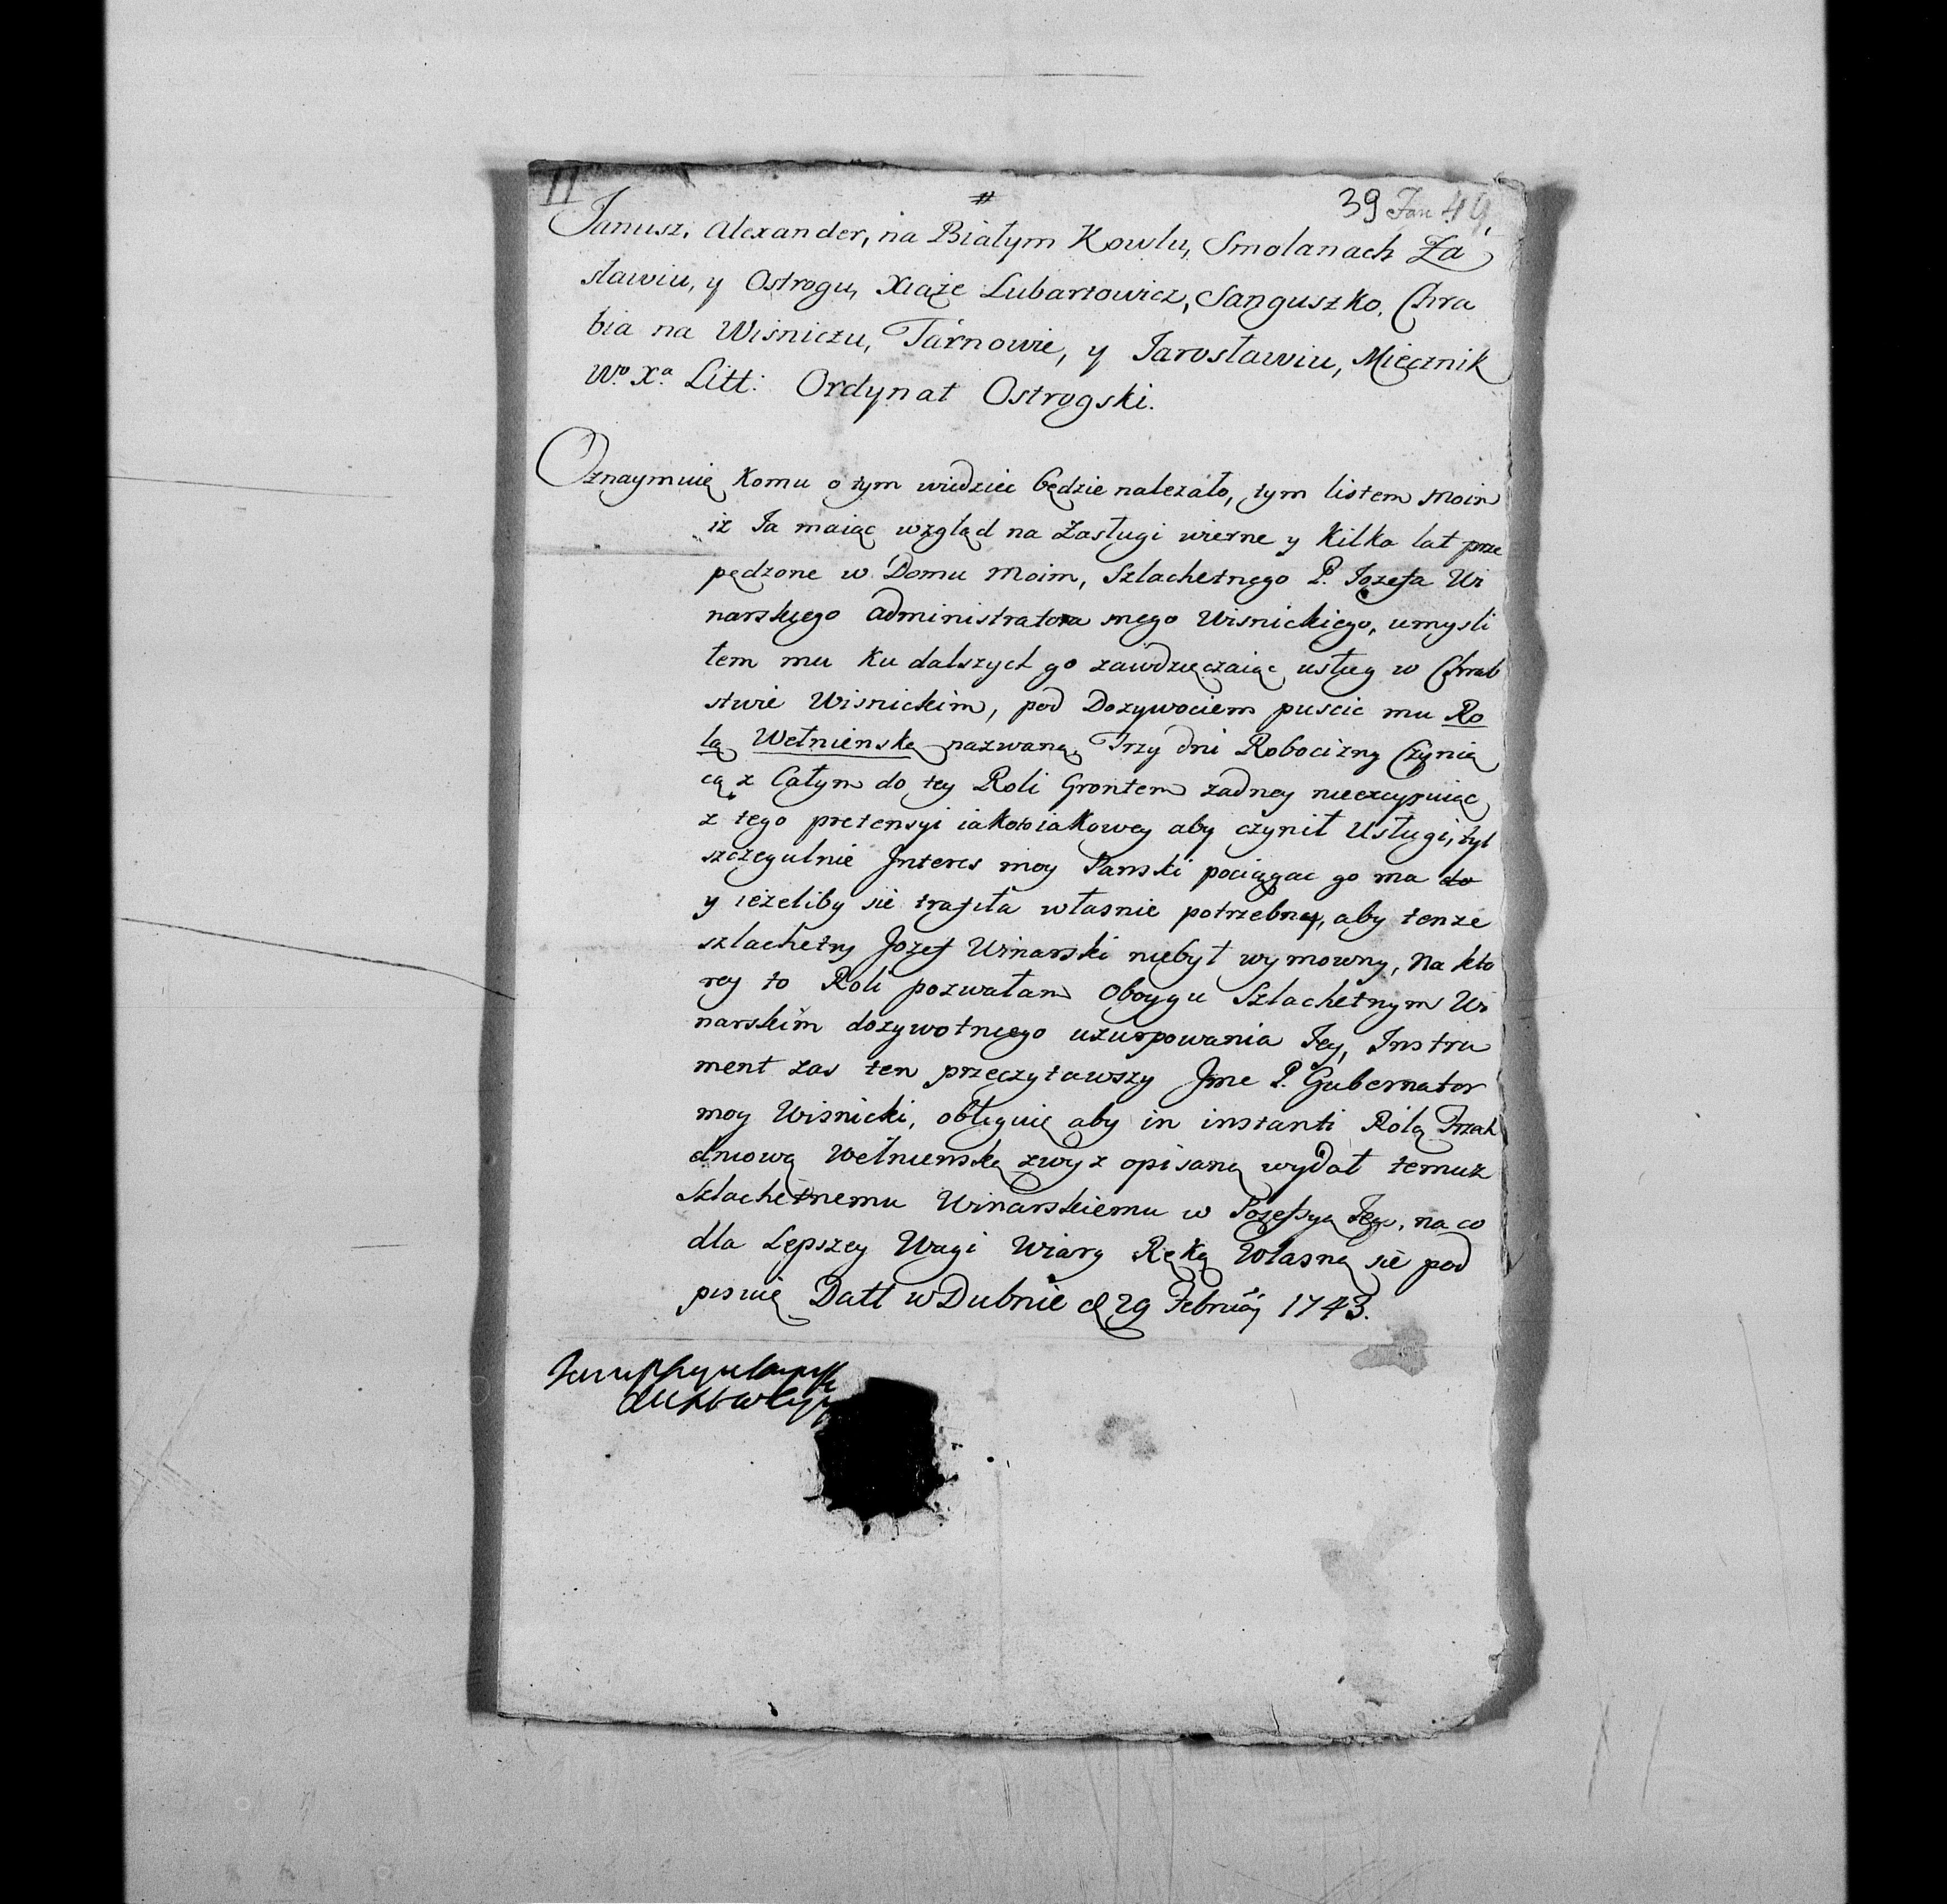 11
#
39 Jan 49
Janusz, Alexander, na Białym Kowlu, Smolanach Za
sławiu, y Ostrogu, Xiąże Lubartowicz, Sanguszko, Chra
bia na Wiśniczu, Tárnowie, y Jarosławiu, Miecznik
Wº. Xª. Litt: Ordynat Ostrogski.
Oznaymuię Komu o tym widziec będzie nalezało, tym listem moim
iz Ja maiąc wzgląd na Zasługi wierne y Kilka lat prze
pędzone w Domu Moim, Szlachetnego P. Jozefa Wi
narskiego administratora mego Wisnickiego, umysli
łem mu Ku dalszych go zawdzięczaiąc usług w Chrab
stwie Wisnickim, pod Dozywociem puscic mu Ro
lą Wełnienską nazwaną, Trzy dni Robocizny Czynią
cą z Całym do tey Roli Grontem zadney nieexcypuiąc
z tego pretensyi iakowiakowey aby czynił Usługi, tyl
szczegulnie Jnteres moy Panski pociągac go ma do
y iezeliby się trafiła własnie potrzebney, aby tenze
szlachetny Jozef Winarski niebył wymowny, Na kto
rey to Roli pozwałam Oboygu Szlachetnym Wi
narskim dozywotniego uzurpowania Jey, Instru
ment zas ten przeczytawszy Jmc P. Gubernator
moy Wisnicki, obliguię aby in instanti Rolą Trzech
dniową Wełnienską zwyz opisaną wydał temuz
Szlachetnemu Winarskiemu w Pozessyą Jego, na co
dla Lepszey Wagi Wiary Ręką Własną się pod
pisuię Datt w Dubnie d 29 Februáÿ 1743.